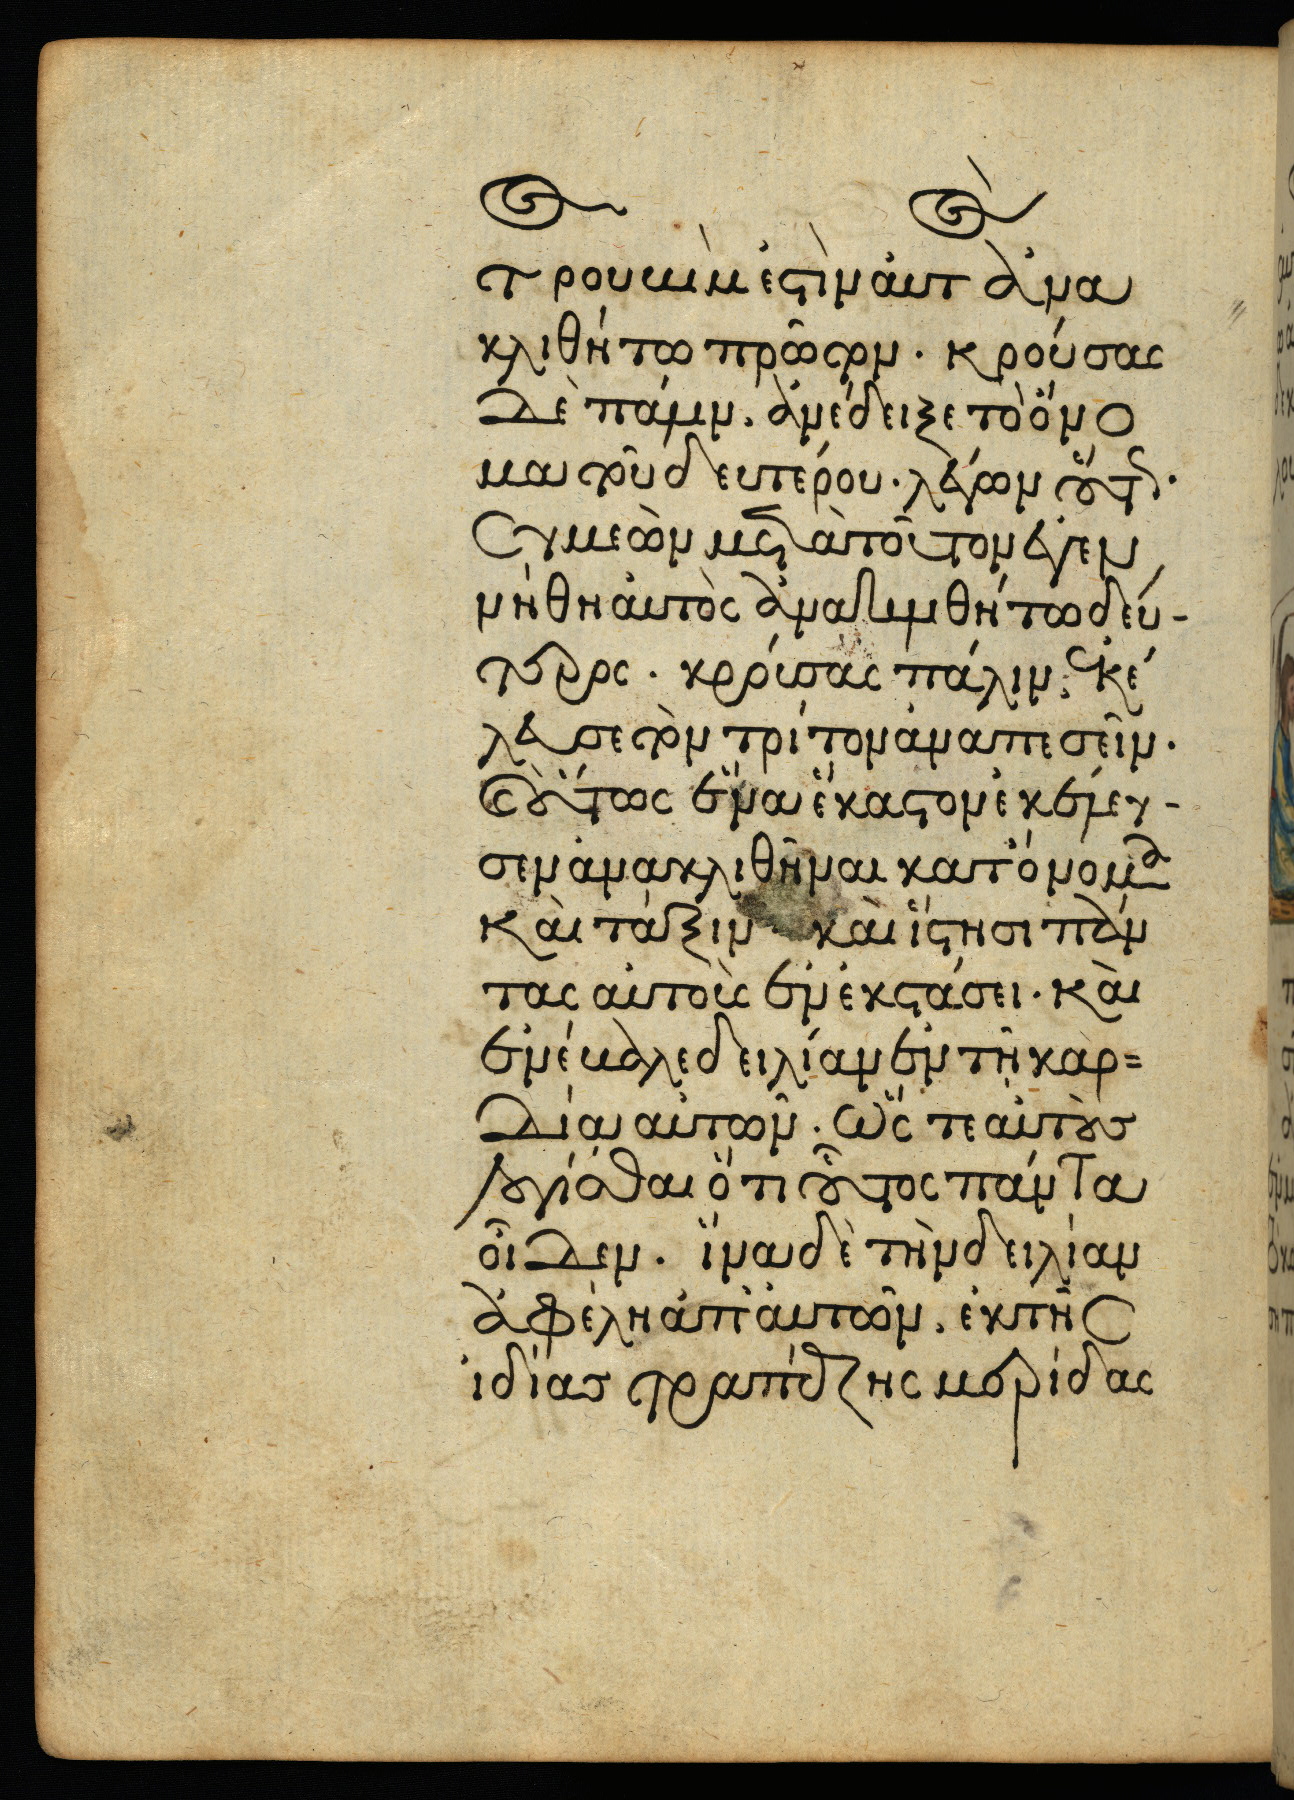 τρουκαὶ ἐστὶν αὐτ ἀνα
κλιθήτω πρῶτον · κρούσας
δὲ πάλιν · ἀνέδειξε τὸ ὄνο
μα τοῦ δευτέρου · λέγων οὕτως ·
Συμεὼν μετὰ τοῦτον ἐγεν
νήθη αὐτὸς ἀνακλινθήτω δεύ-
τερος · κρούσας πάλιν · ἐκέ
λευσε τὸν τρίτον ἀναπεσεῖν ·
Οὕτως ἕνα ἕκαστον ἐκέλευ-
σεν ἀνακλιθῆναι κατ' ὄνομα
καὶ τάξιν · καὶ ἵστησι πάν
τας αὐτοὺς ἐν ἐκστάσει · καὶ
ἐνέβαλε δειλίαν ἐν τῇ καρ=
δίᾳ αὐτῶν · ὥς τε αὐτοὺς
λογίσθαι ὅτι οὗτος πάντα
οἶδεν · ἵνα δὲ τὴν δειλίαν
ἀφέλη ἀπ' αὐτῶν · ἐκ τῆς
ἰδίας τραπέζης μερίδας